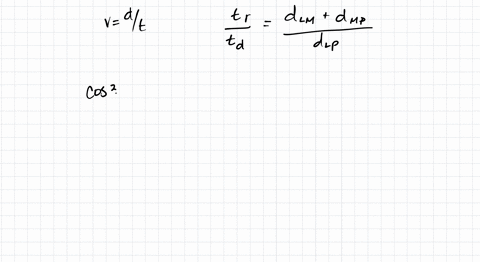 v = d/t
t_r / t_d = (d_LM + d_MP) / d_LP
cos²